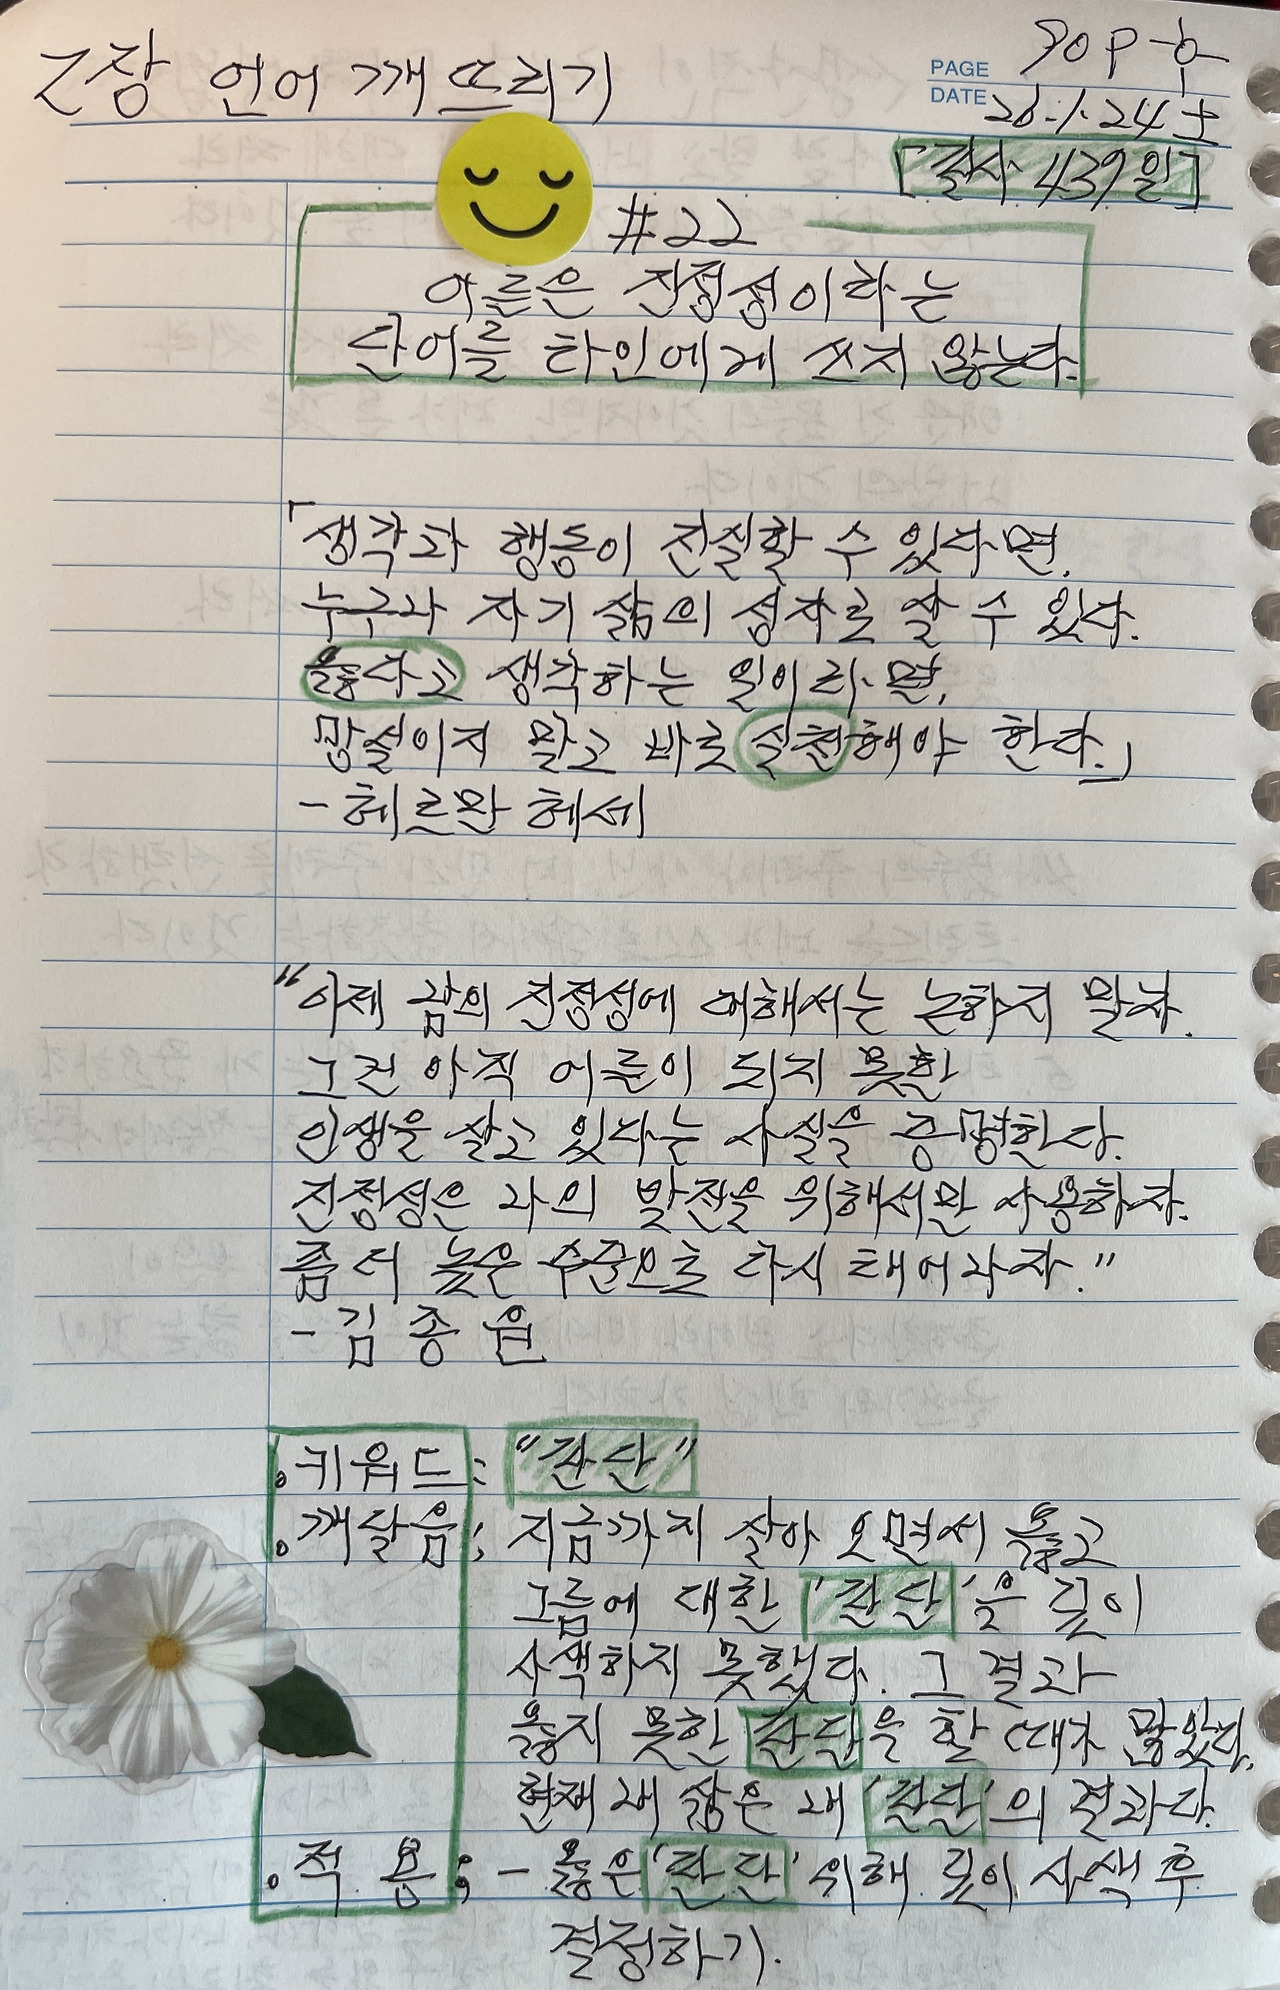 2장 언어 깨뜨리기
90P
PAGE
DATE 26.1.24 土
[필사 439일]
#22
어른은 진정성이라는
단어를 타인에게 쓰지 않는다.
「생각과 행동이 진실할 수 있다면,
누구나 자기 삶의 성자로 살 수 있다.
옳다고 생각하는 일이라면,
망설이지 말고 바로 실천해야 한다.」
- 헤르만 헤세
"이제 남의 진정성에 대해서는 논하지 말자.
그건 아직 어른이 되지 못한
인생을 살고 있다는 사실을 증명한다.
진정성은 나의 발전을 위해서만 사용하자.
좀 더 높은 수준으로 다시 태어나자."
- 김종원
• 키워드: "판단"
• 깨달음; 지금까지 살아 오면서 옳고
그름에 대한 '판단'을 깊이
사색하지 못했다. 그 결과
옳지 못한 판단을 할 때가 많았다.
현재 내 삶은 내 '판단'의 결과다.
• 적용; - 옳은 '판단' 위해 깊이 사색 후
결정하기.